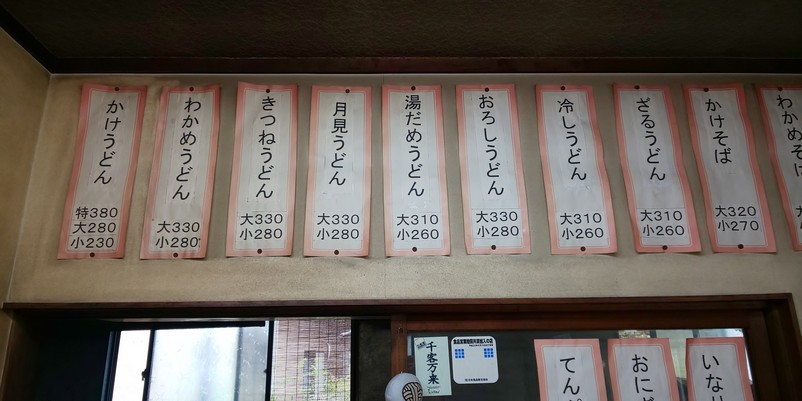 かけうどん
特380
大280
小230
わかめうどん
大330
小280
きつねうどん
大330
小280
月見うどん
大330
小280
湯だめうどん
大310
小260
おろしうどん
大330
小280
冷しうどん
大310
小260
ざるうどん
大310
小260
かけそば
大320
小270
わかめそ
千客万来
てん
おに
いな